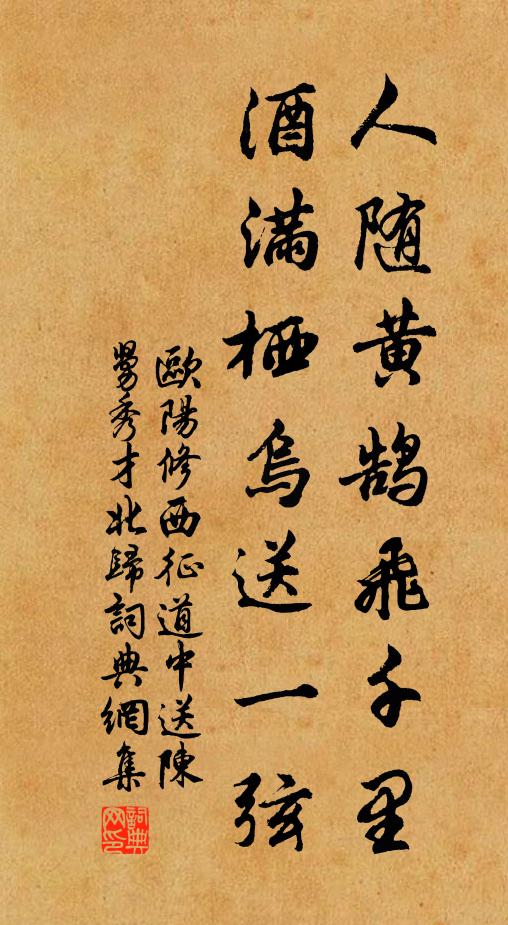 人随黄鵠飛千里
酒滿栖烏送一弦
歐陽修西征道中送陳
舅秀才北歸詞典網集
詞典网印